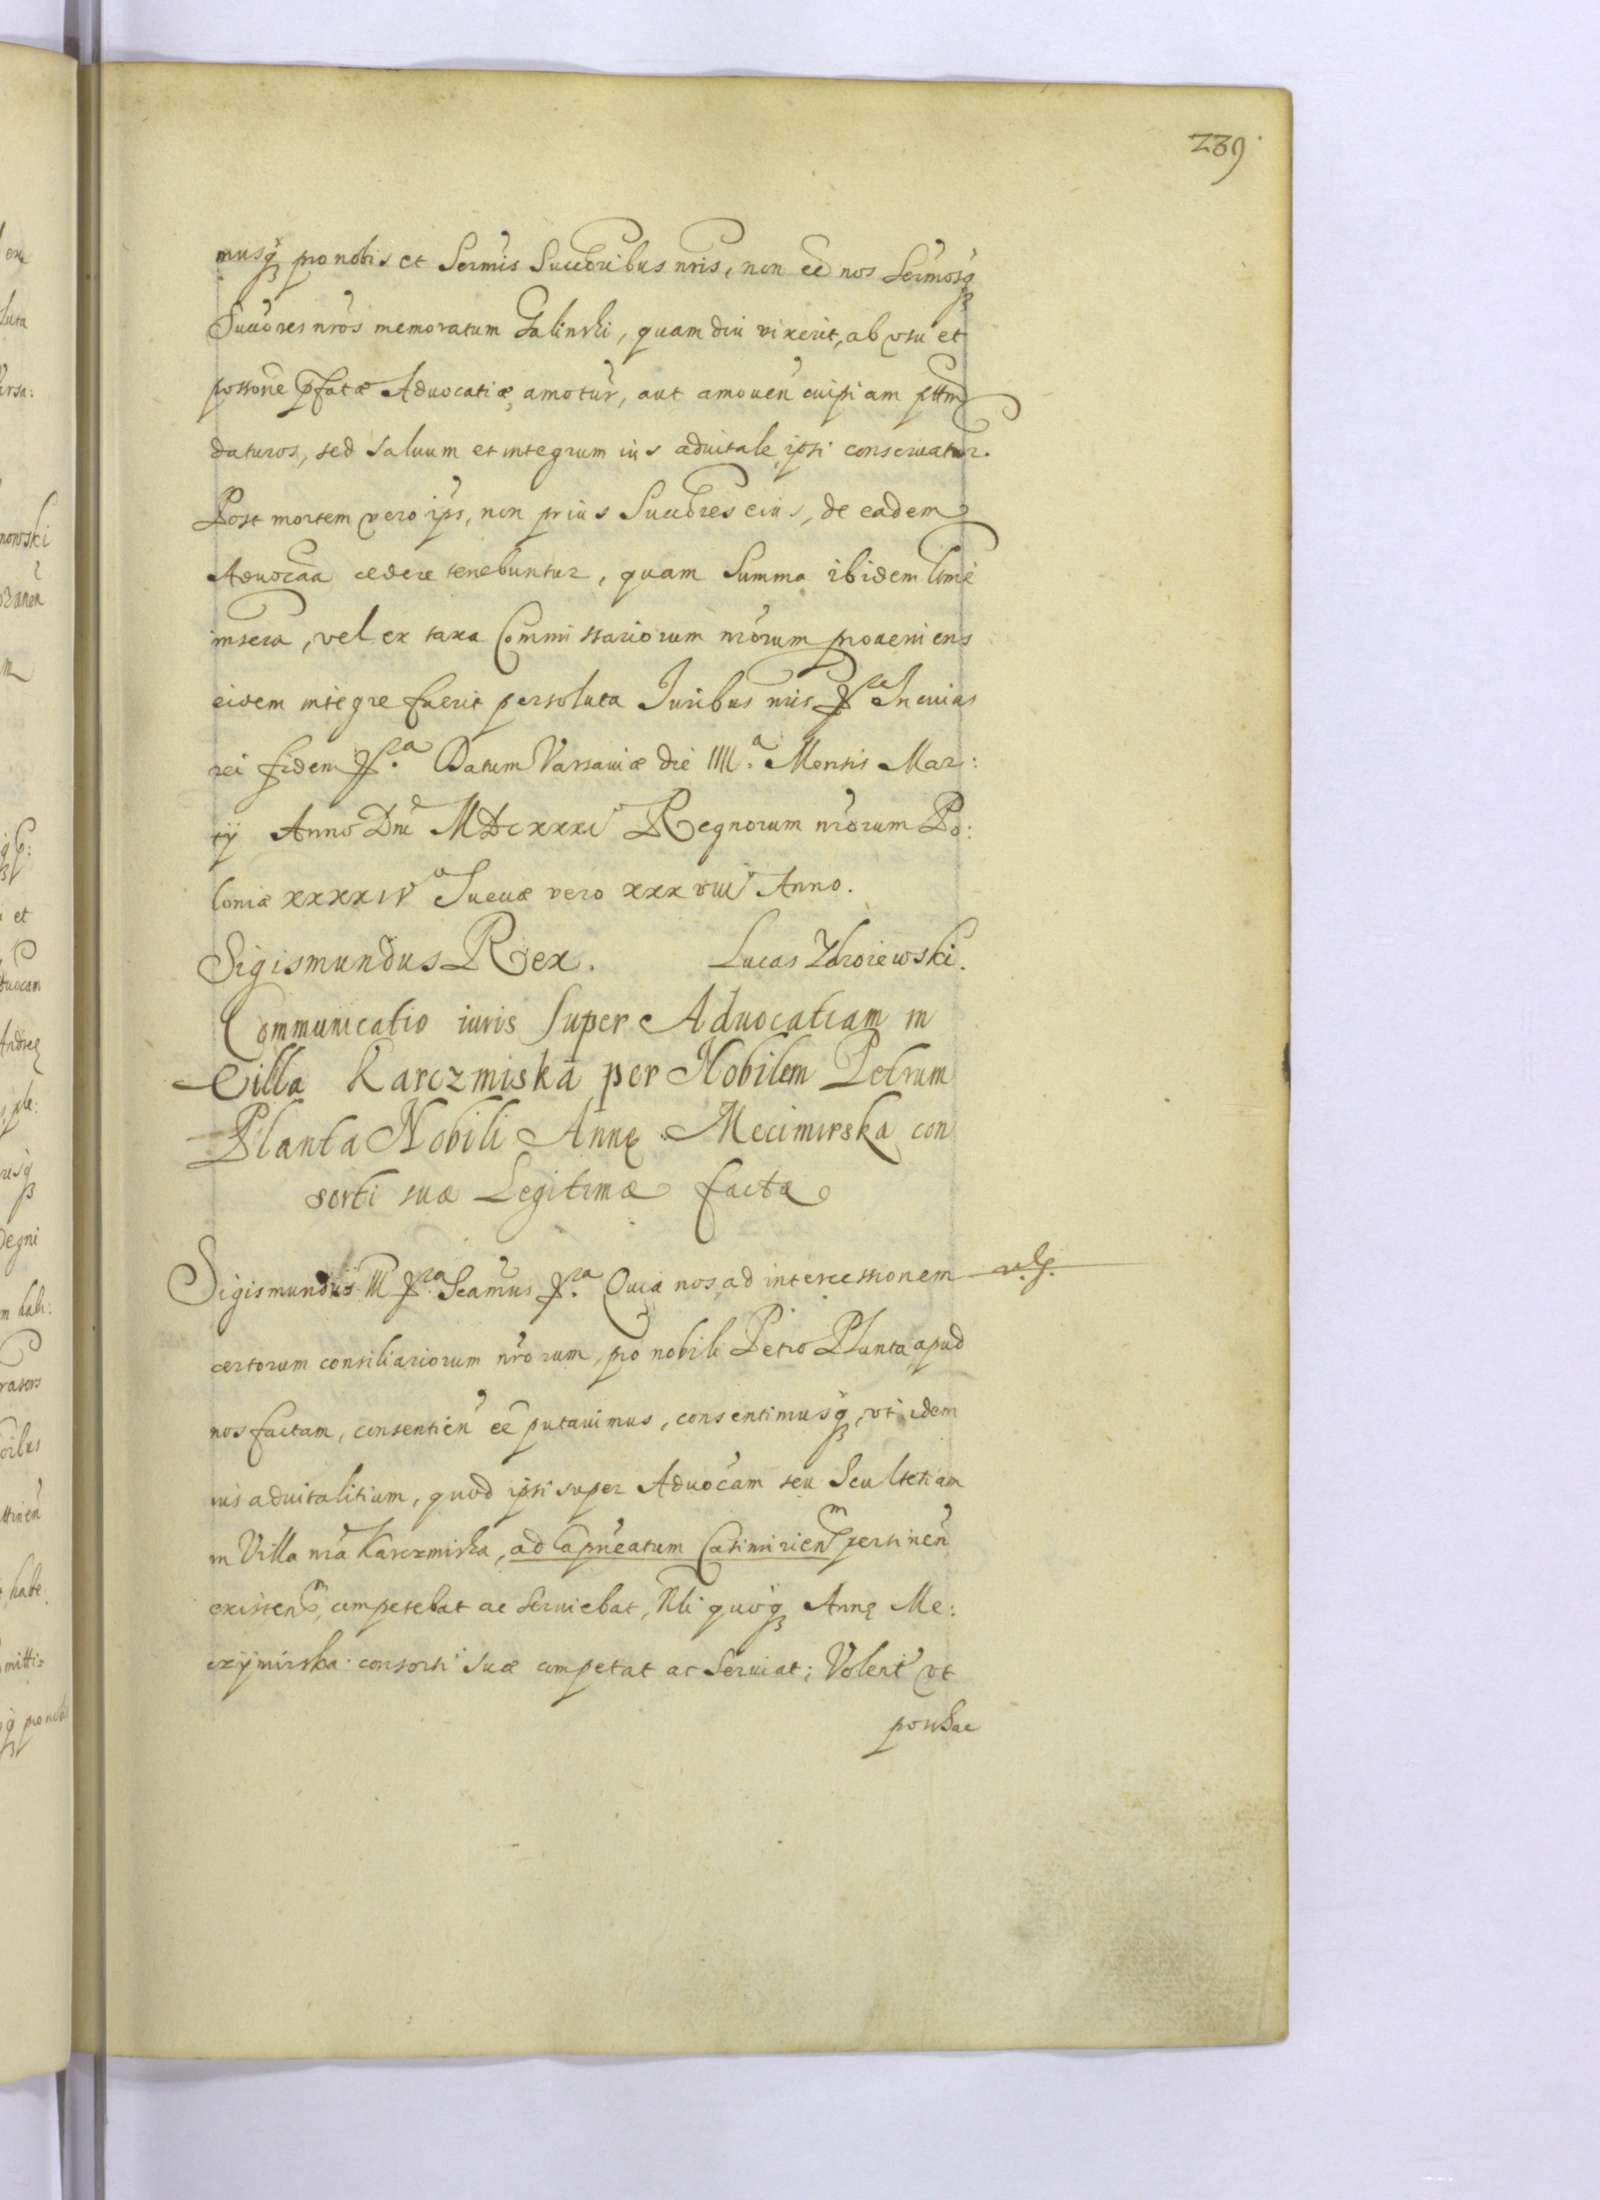 239
musq́ pro nobis et Sermis Succoribus nris, non eē nos Sermosq́
Succores nros memoratum Galinski, quam diu vixerit, ab vsu et
possone pfatæ Aduocatiæ, amotur, aut amouen cuipiam pttm
daturos, sed saluum et integrum ius aduitale ipsi conseruatur.
Post mortem vero ips, non prius Succores eius, de eadem
Aduocaa cedere tenebuntur, quam Summa ibidem ltme
inscra, vel ex taxa Commissariorum nrorum proueniens
eidem integre fuerit persoluta Juribus nris &ca In cuius
rei fidem &ca. Datum Varsauiæ die IIII.a Mensis Mar:
ty Anno Dni MDCXXXI Regnorum nrorum Po:
loniæ XXXXIV Sueciæ vero XXXVIII Anno.
Sigismundus Rex. Lucas Zdroiewski.
Communicatio iuris super Aduocatiam in
Villa Karczmiska per Nobilem Petrum
Planta Nobili Annę Mecimirska con
sorti suæ Legitimæ facta
Sigismundus III &ca Seamus &ca. Quia nos, ad intercessionem
certorum consiliariorum nrorum, pro nobili Petro Planta, apud
nos factam, consentien eē putauimus, consentimusq́, vti idem
ius aduitalitium, quod ipsi super Aduocam seu Scultetiam
in Villa nra Karczmiska, ad Capneatum Casimirien pertinen
existenm, competebat ac seruiebat, Nli quoq́ Annę Me:
czymirska consorti suæ competat ac seruiat; Volent vt